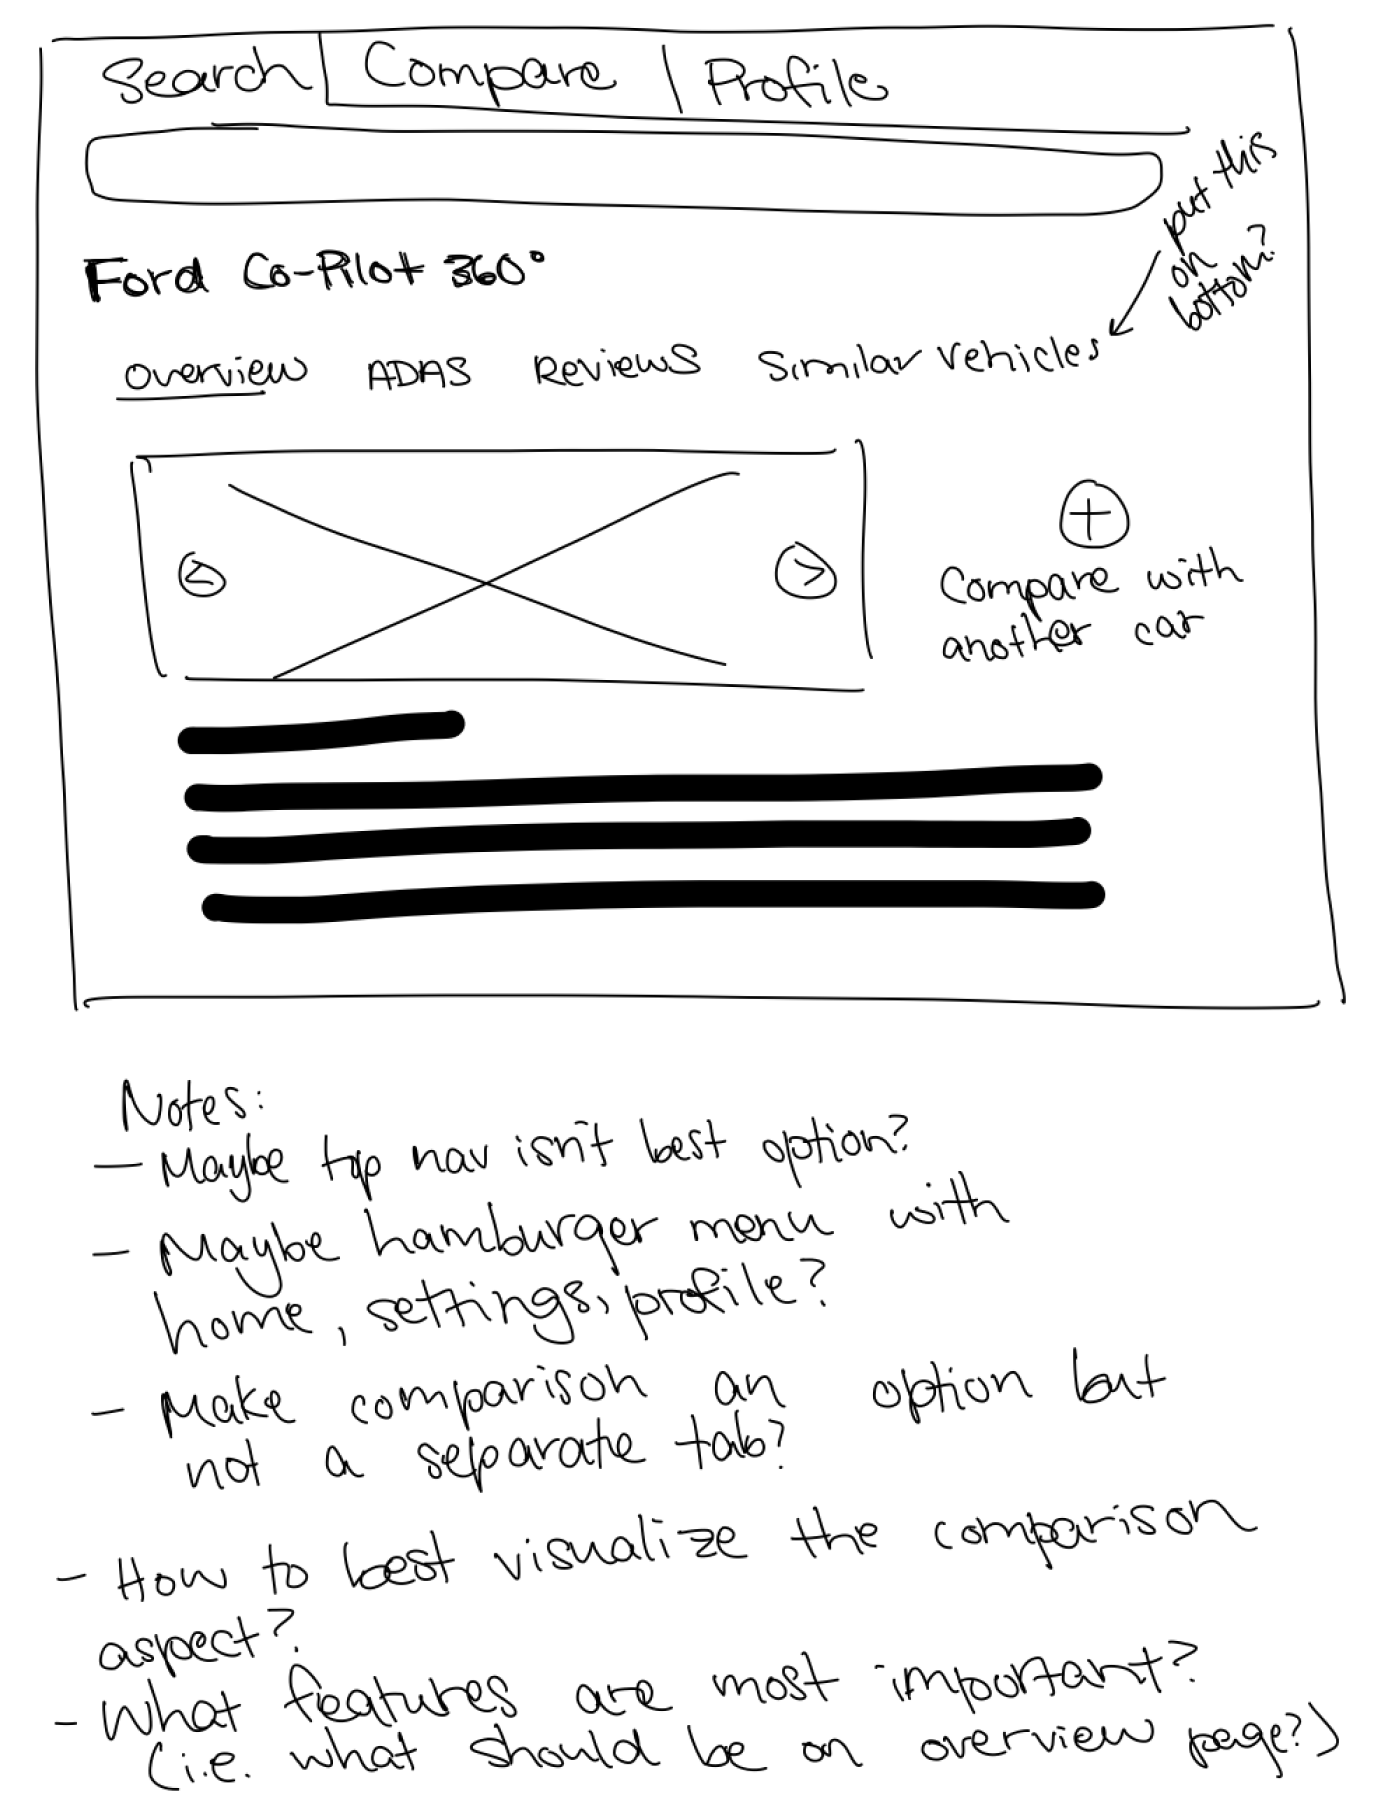 Search | Compare | Profile
put this
on
bottom?
Ford Co-Pilot 360°
Overview ADAS Reviews Similar Vehicles
< >
+
Compare with
another car
Notes:
- Maybe top nav isn't best option?
- Maybe hamburger menu with
home, settings, profile?
- Make comparison an option but
not a separate tab?
- How to best visualize the comparison
aspect?
- What features are most important?
(i.e. what should be on overview page?)